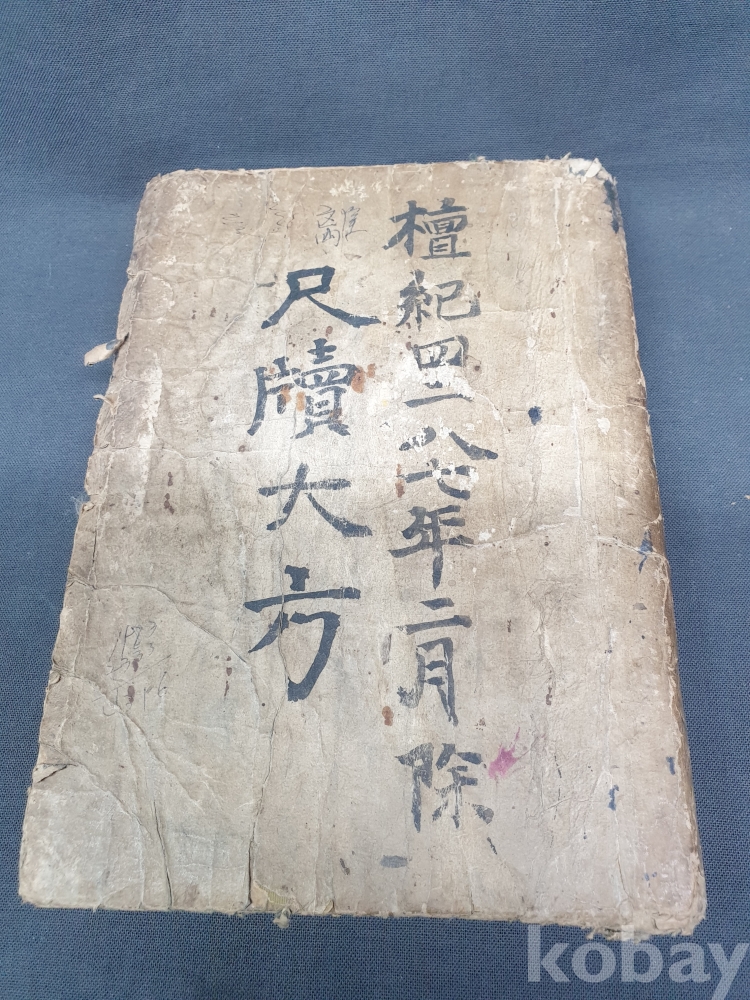 檀紀四二八七年二月除
尺牘大方
離
kobay